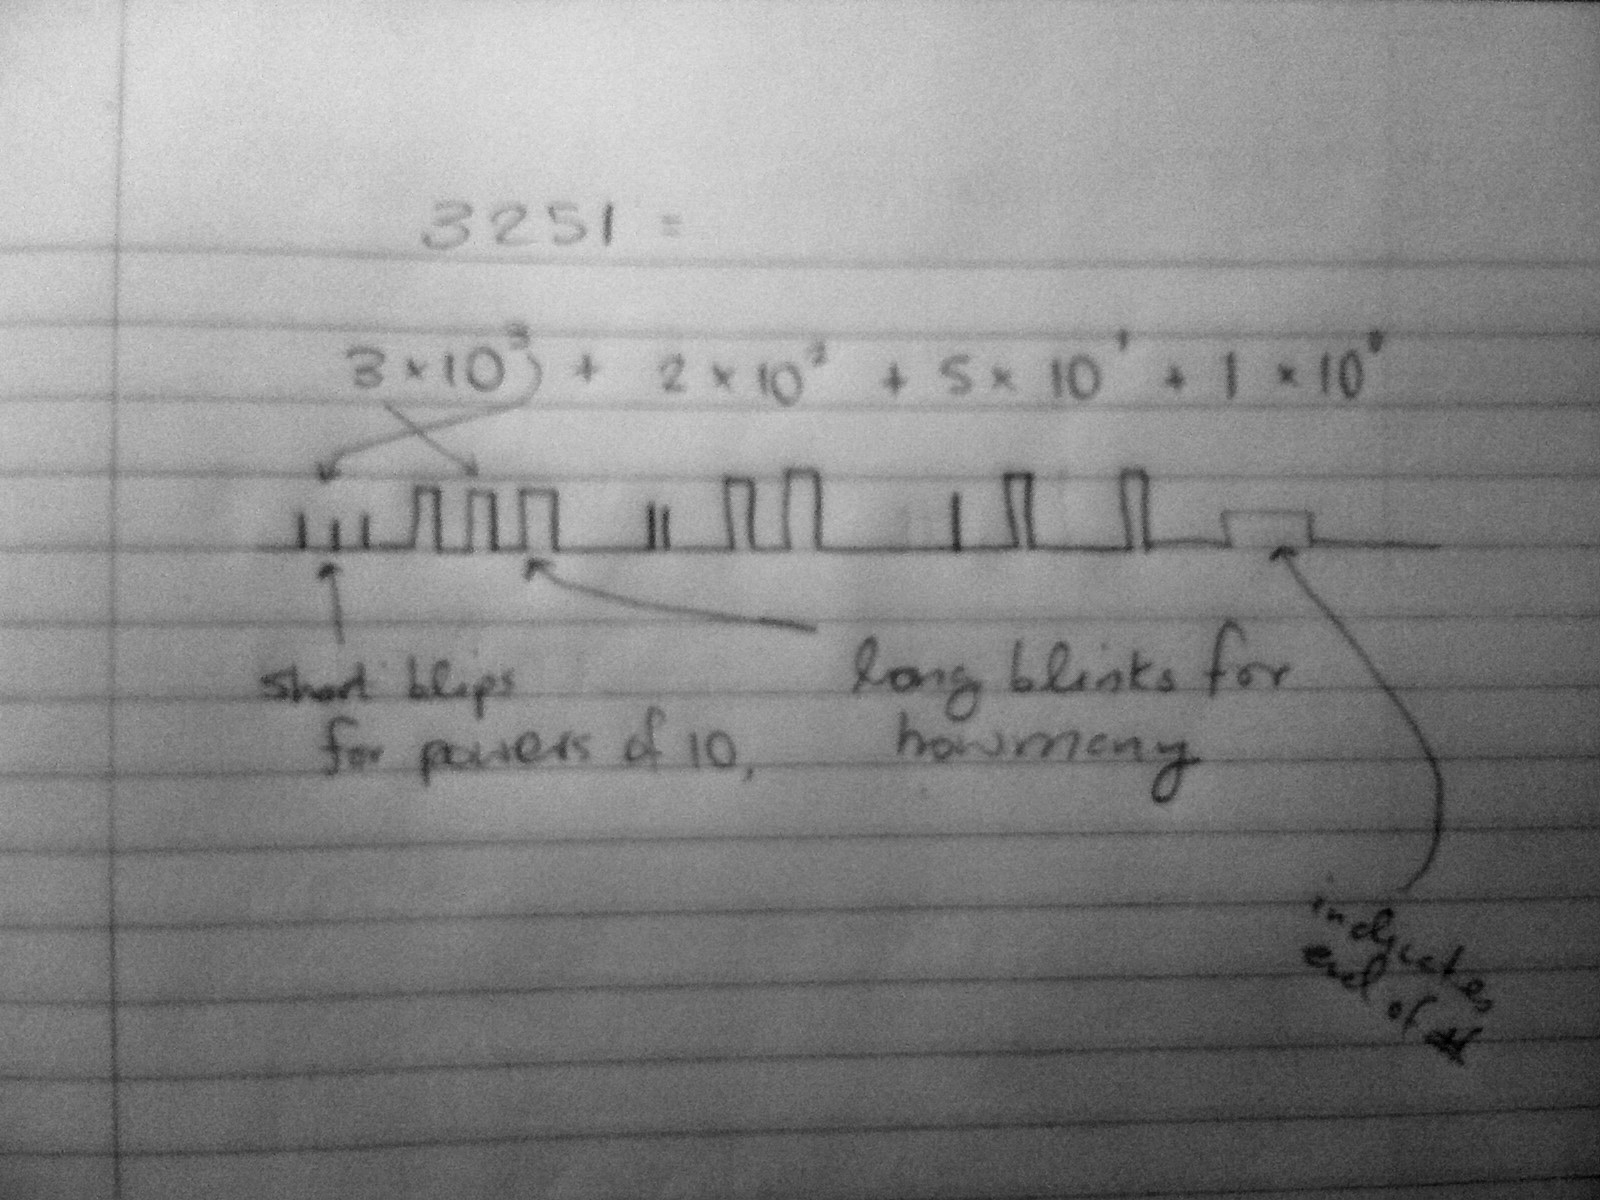 3251 =
3 × 10³ + 2 × 10² + 5 × 10¹ + 1 × 10⁰
short blips
for powers of 10,
long blinks for
howmany
indicates
end of